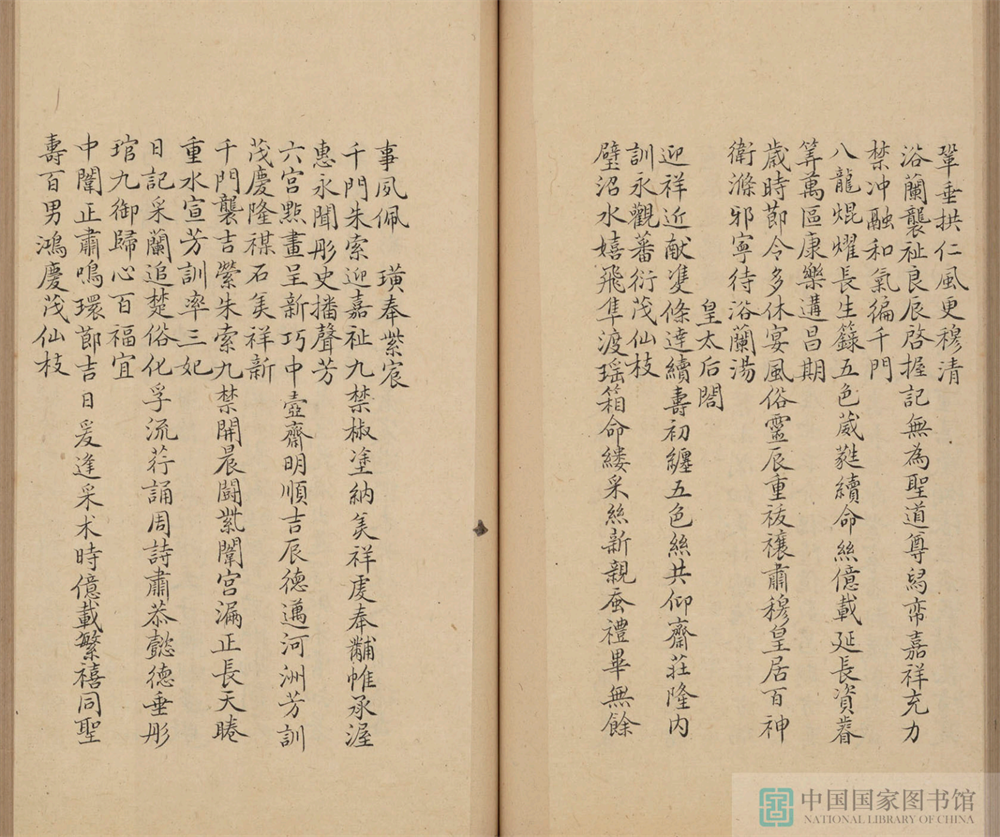 鞏垂拱仁風更穆清
浴蘭襲祉良辰啓握記無為聖道尊舄帟嘉祥充力
禁冲融和氣徧千門
八龍焜燿長生籙五色葳蕤續命絲億載延長資眷
筭萬區康樂溝昌期
歲時節令多休宴風俗靈辰重祓禳肅穆皇居百神
衛滌邪寧待浴蘭湯
皇太后閤
迎祥近献雙條達續壽初纏五色絲共仰齋莊隆内
訓永觀蕃衍茂仙枝
璧沼水嬉飛隼渡瑶箱命縷采絲新親蚕禮畢無餘
事夙佩璜奉紫宸
千門朱索迎嘉祉九禁椒塗納美祥虔奉黼帷承渥
惠永聞彤史播聲芳
六宫點畫呈新巧中壼齋明順吉辰德邁河洲芳訓
茂慶隆禖石美祥新
千門襲吉縈朱索九禁開晨闢紫闈宫漏正長天睠
重水宣芳訓率三妃
日記采蘭追楚俗化孚流荇誦周詩肅恭懿德垂彤
琯九御歸心百福宜
中闈正肅鳴環節吉日爰逢采术時億載繁禧同聖
壽百男鴻慶茂仙枝
中国国家图书馆
NATIONAL LIBRARY OF CHINA